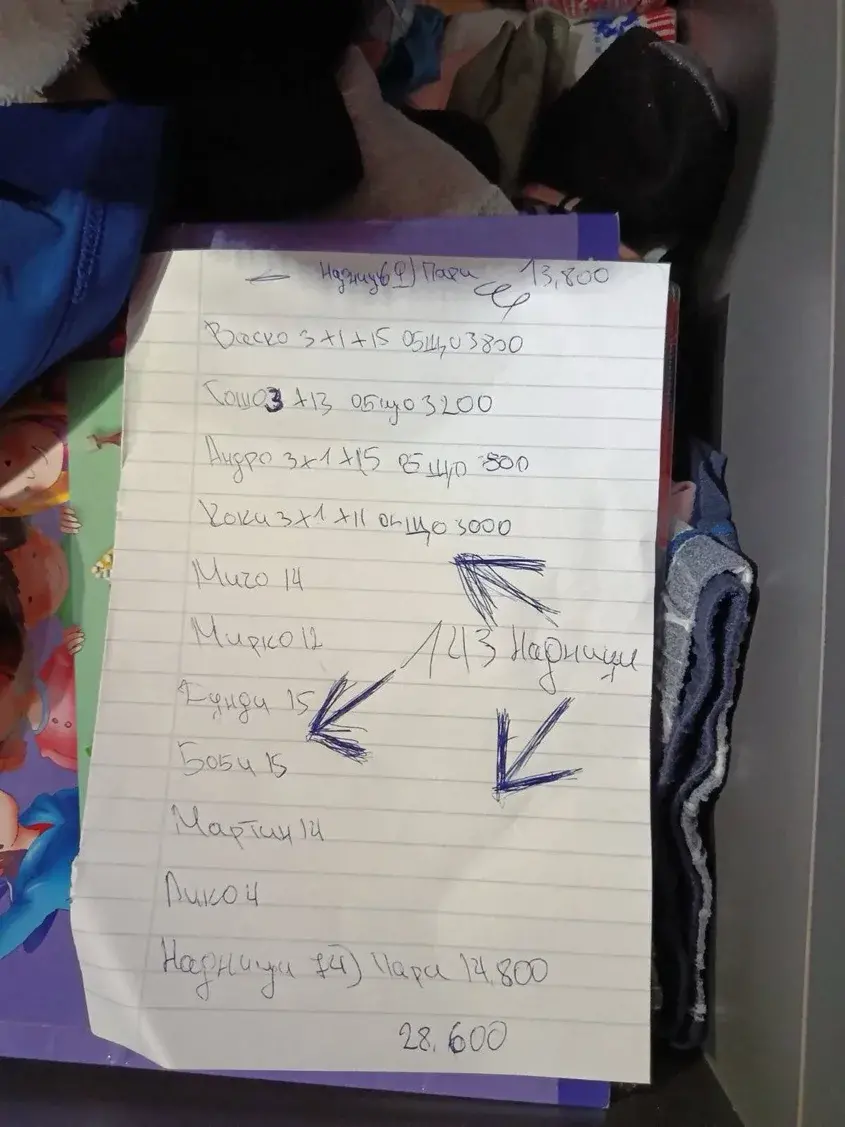 Надници 69) Пари 13,800
Васко 3+1+15 общо 3800
Гошо 3 +13 общо 3200
Андро 3+1+15 общо 3800
Коки 3+1+11 общо 3000
Мичо 14
Мирко 12
143 Надници
15
Боби 15
Мартин 14
Лико 4
Надници 74) Пари 14.800
28.600